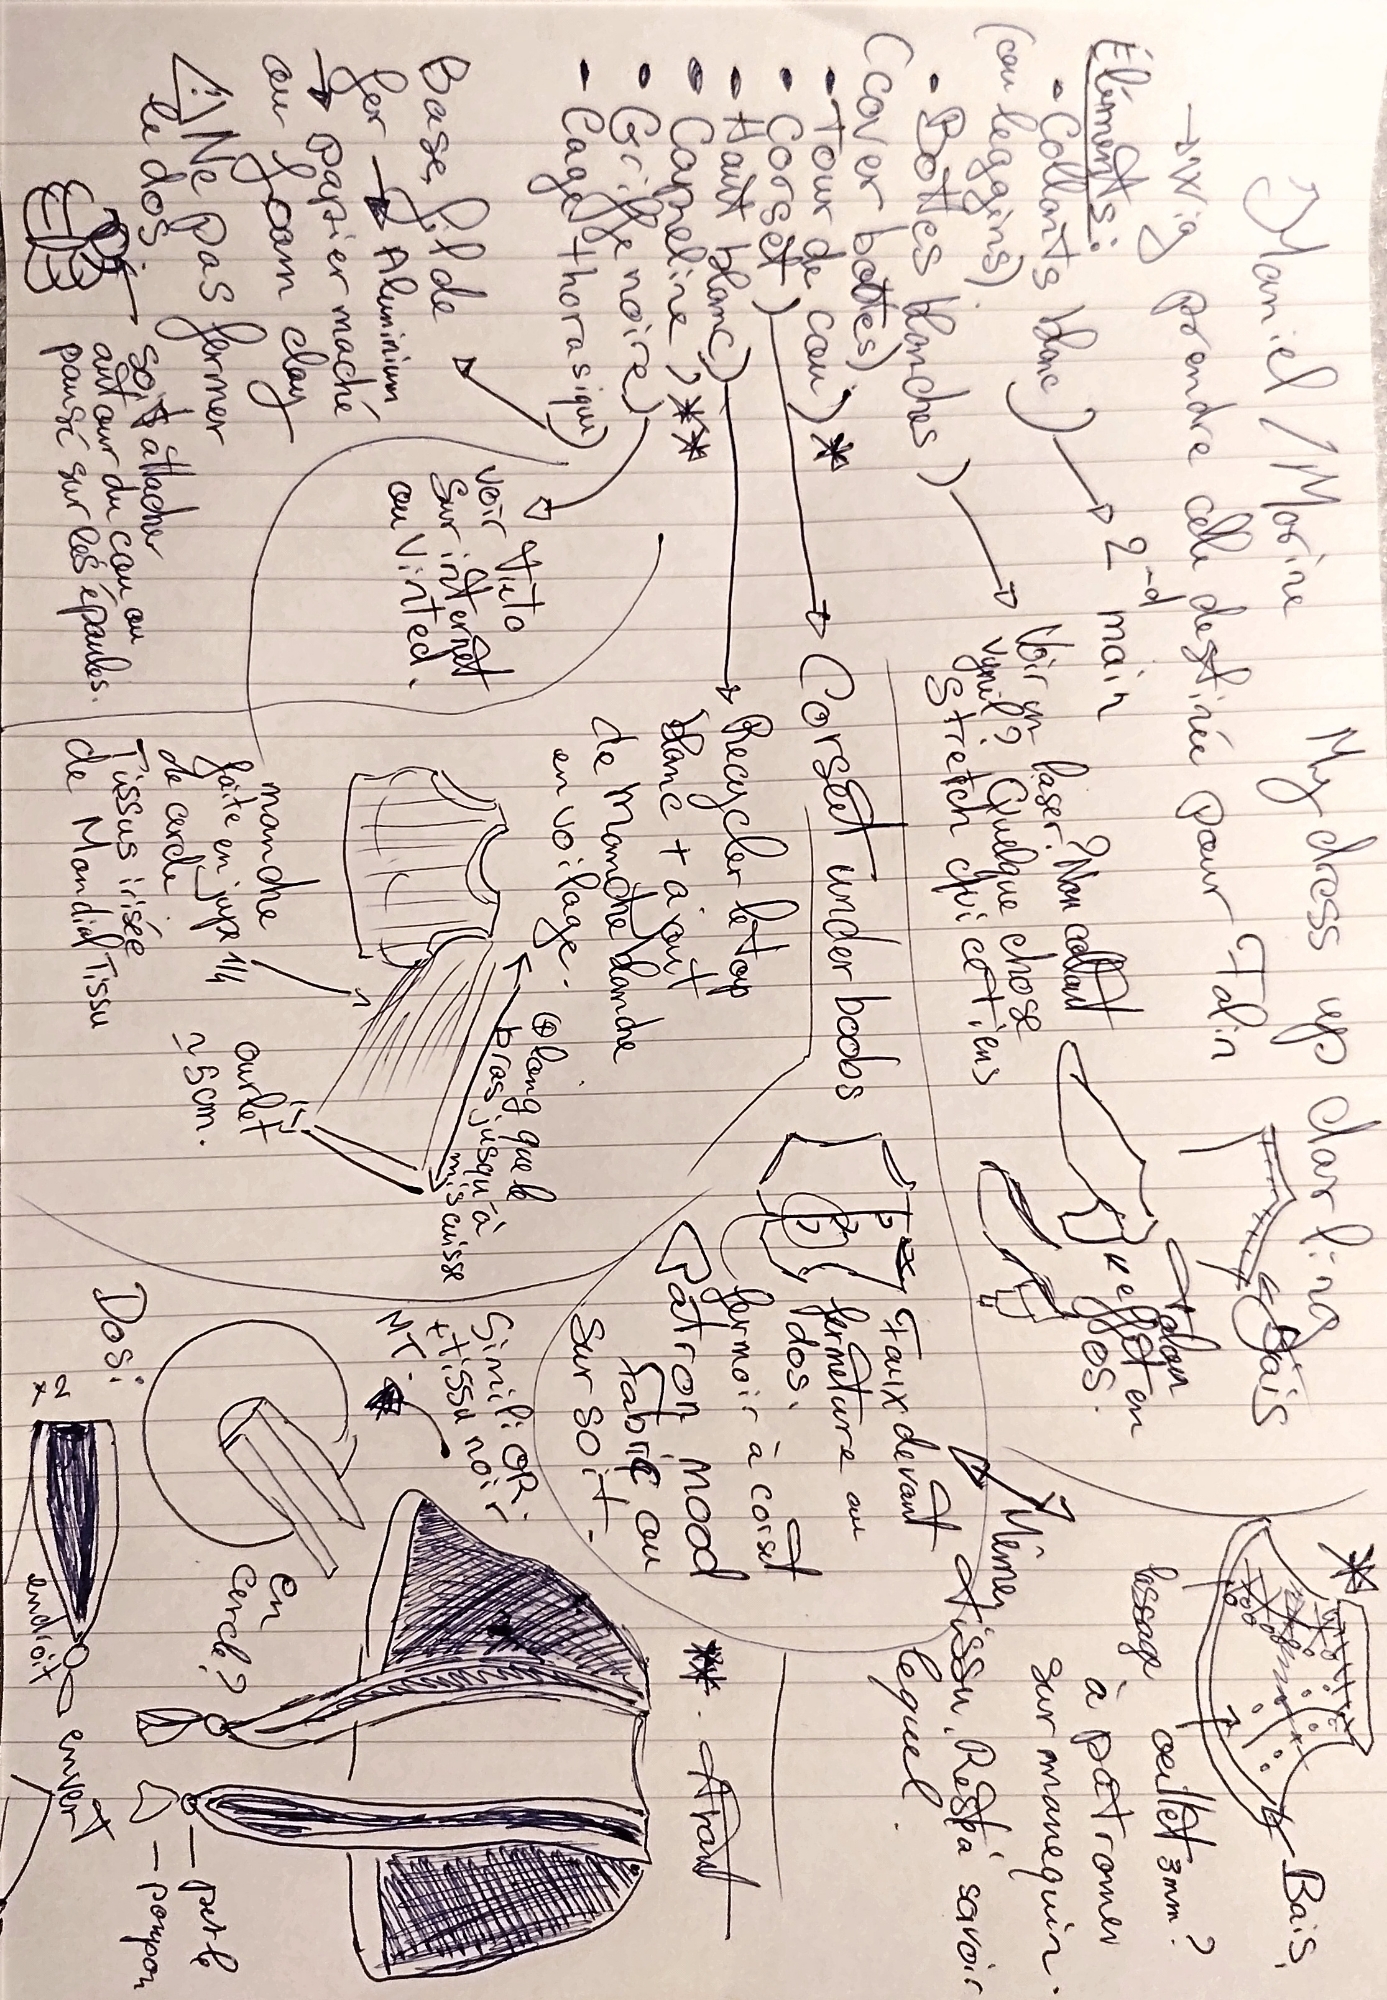 Maniel / Marine My dress up darling
→ Wig prendre celle destinée pour Talin
Éléments:
- Collants blanc)
(ou leggins)
→ 2-d main
- Bottes blanches)
(cover bottes)
→ Voir un laser? Non collant
vynil? Quelque chose
Stretch qui cet iens
talon
effet en
os.
- Tour de cou) *
- Corset)
→ Corset underboobs
- Haut blanc)
→ Recycler le top
blanc + ajout
de manche blanche
en voilage.
- Capeline) **
- Griffe noire)
→ voir tuto
sur internet
ou Vinted.
- Cage thorasique)
Base fil de
fer → Aluminium
→ papier maché
ou foam clay
⚠ Ne pas fermer
le dos
soit attacher
autour du cou ou
pausé sur les épaules.
manche
faite en jupe 1/4
de cercle
Tissus irisée
de Mondial Tissu
⊕ long que le
bras jusqu'à
mis cuisse
ourlet
~ 5cm.
Faux devant
fermeture au
dos.
fermoir à corset
Patron mood
fabric ou
sur soit.
Biais
*
Biais.
lessage oeillet 3mm?
à patronner
sur manequin.
→ Même tissu. Resta savoir
lequel.
** Avant
Simili OR.
+ tissu noir
MT.
En
cercle?
Dos:
x2
endroit
envert
— perle
— pompon